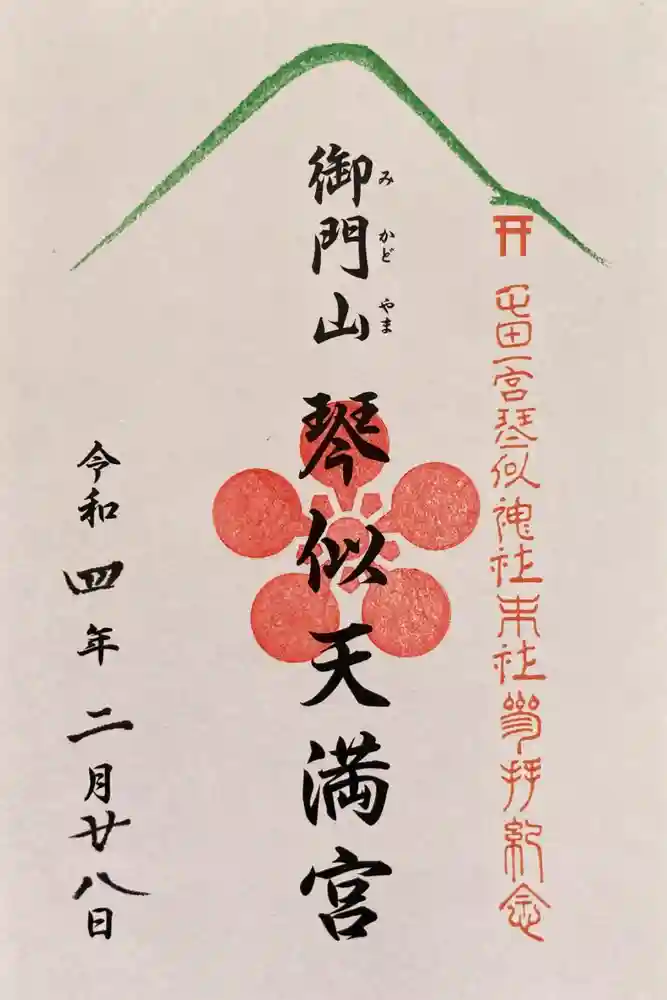 屯田一宮琴似神社末社参拝紀念
御門山 琴似天満宮
みかどやま
令和四年二月廿八日